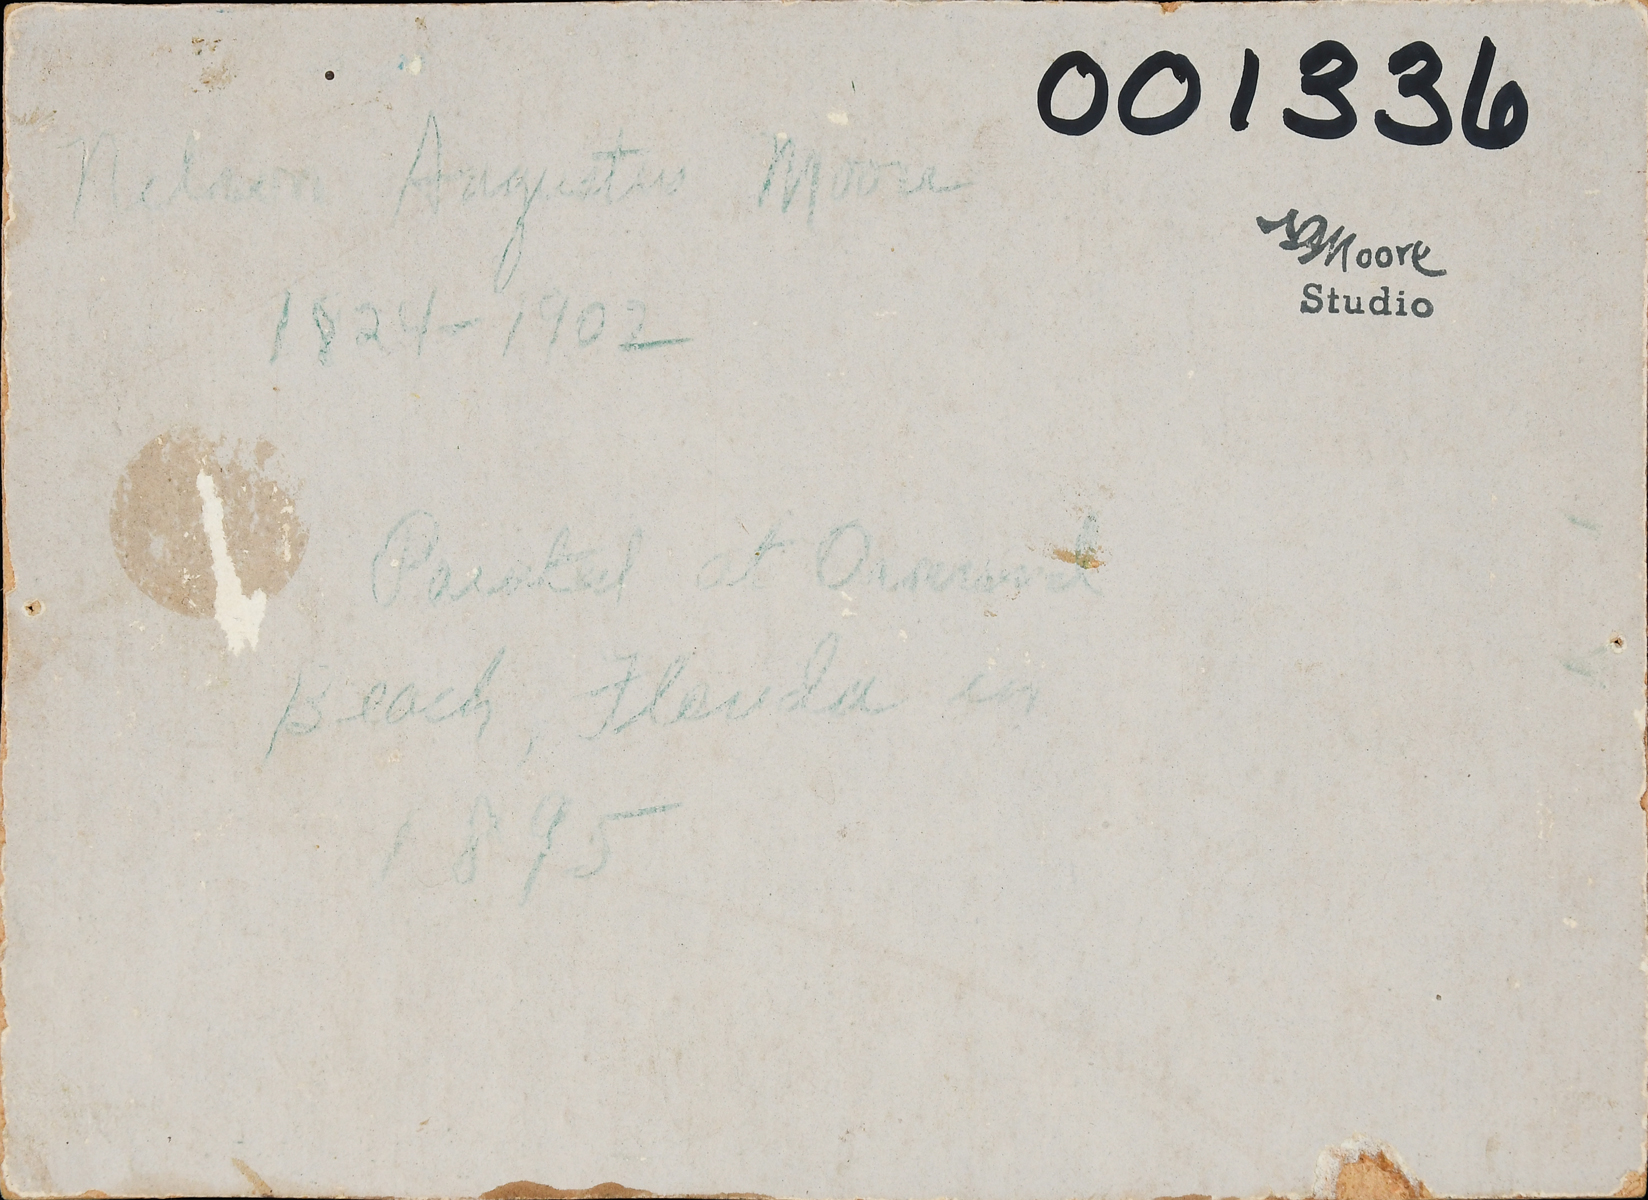 001336
Nelson Augustus Moore
NAMoore
Studio
1824-1902
Painted at Ormond
Beach, Florida in
1895